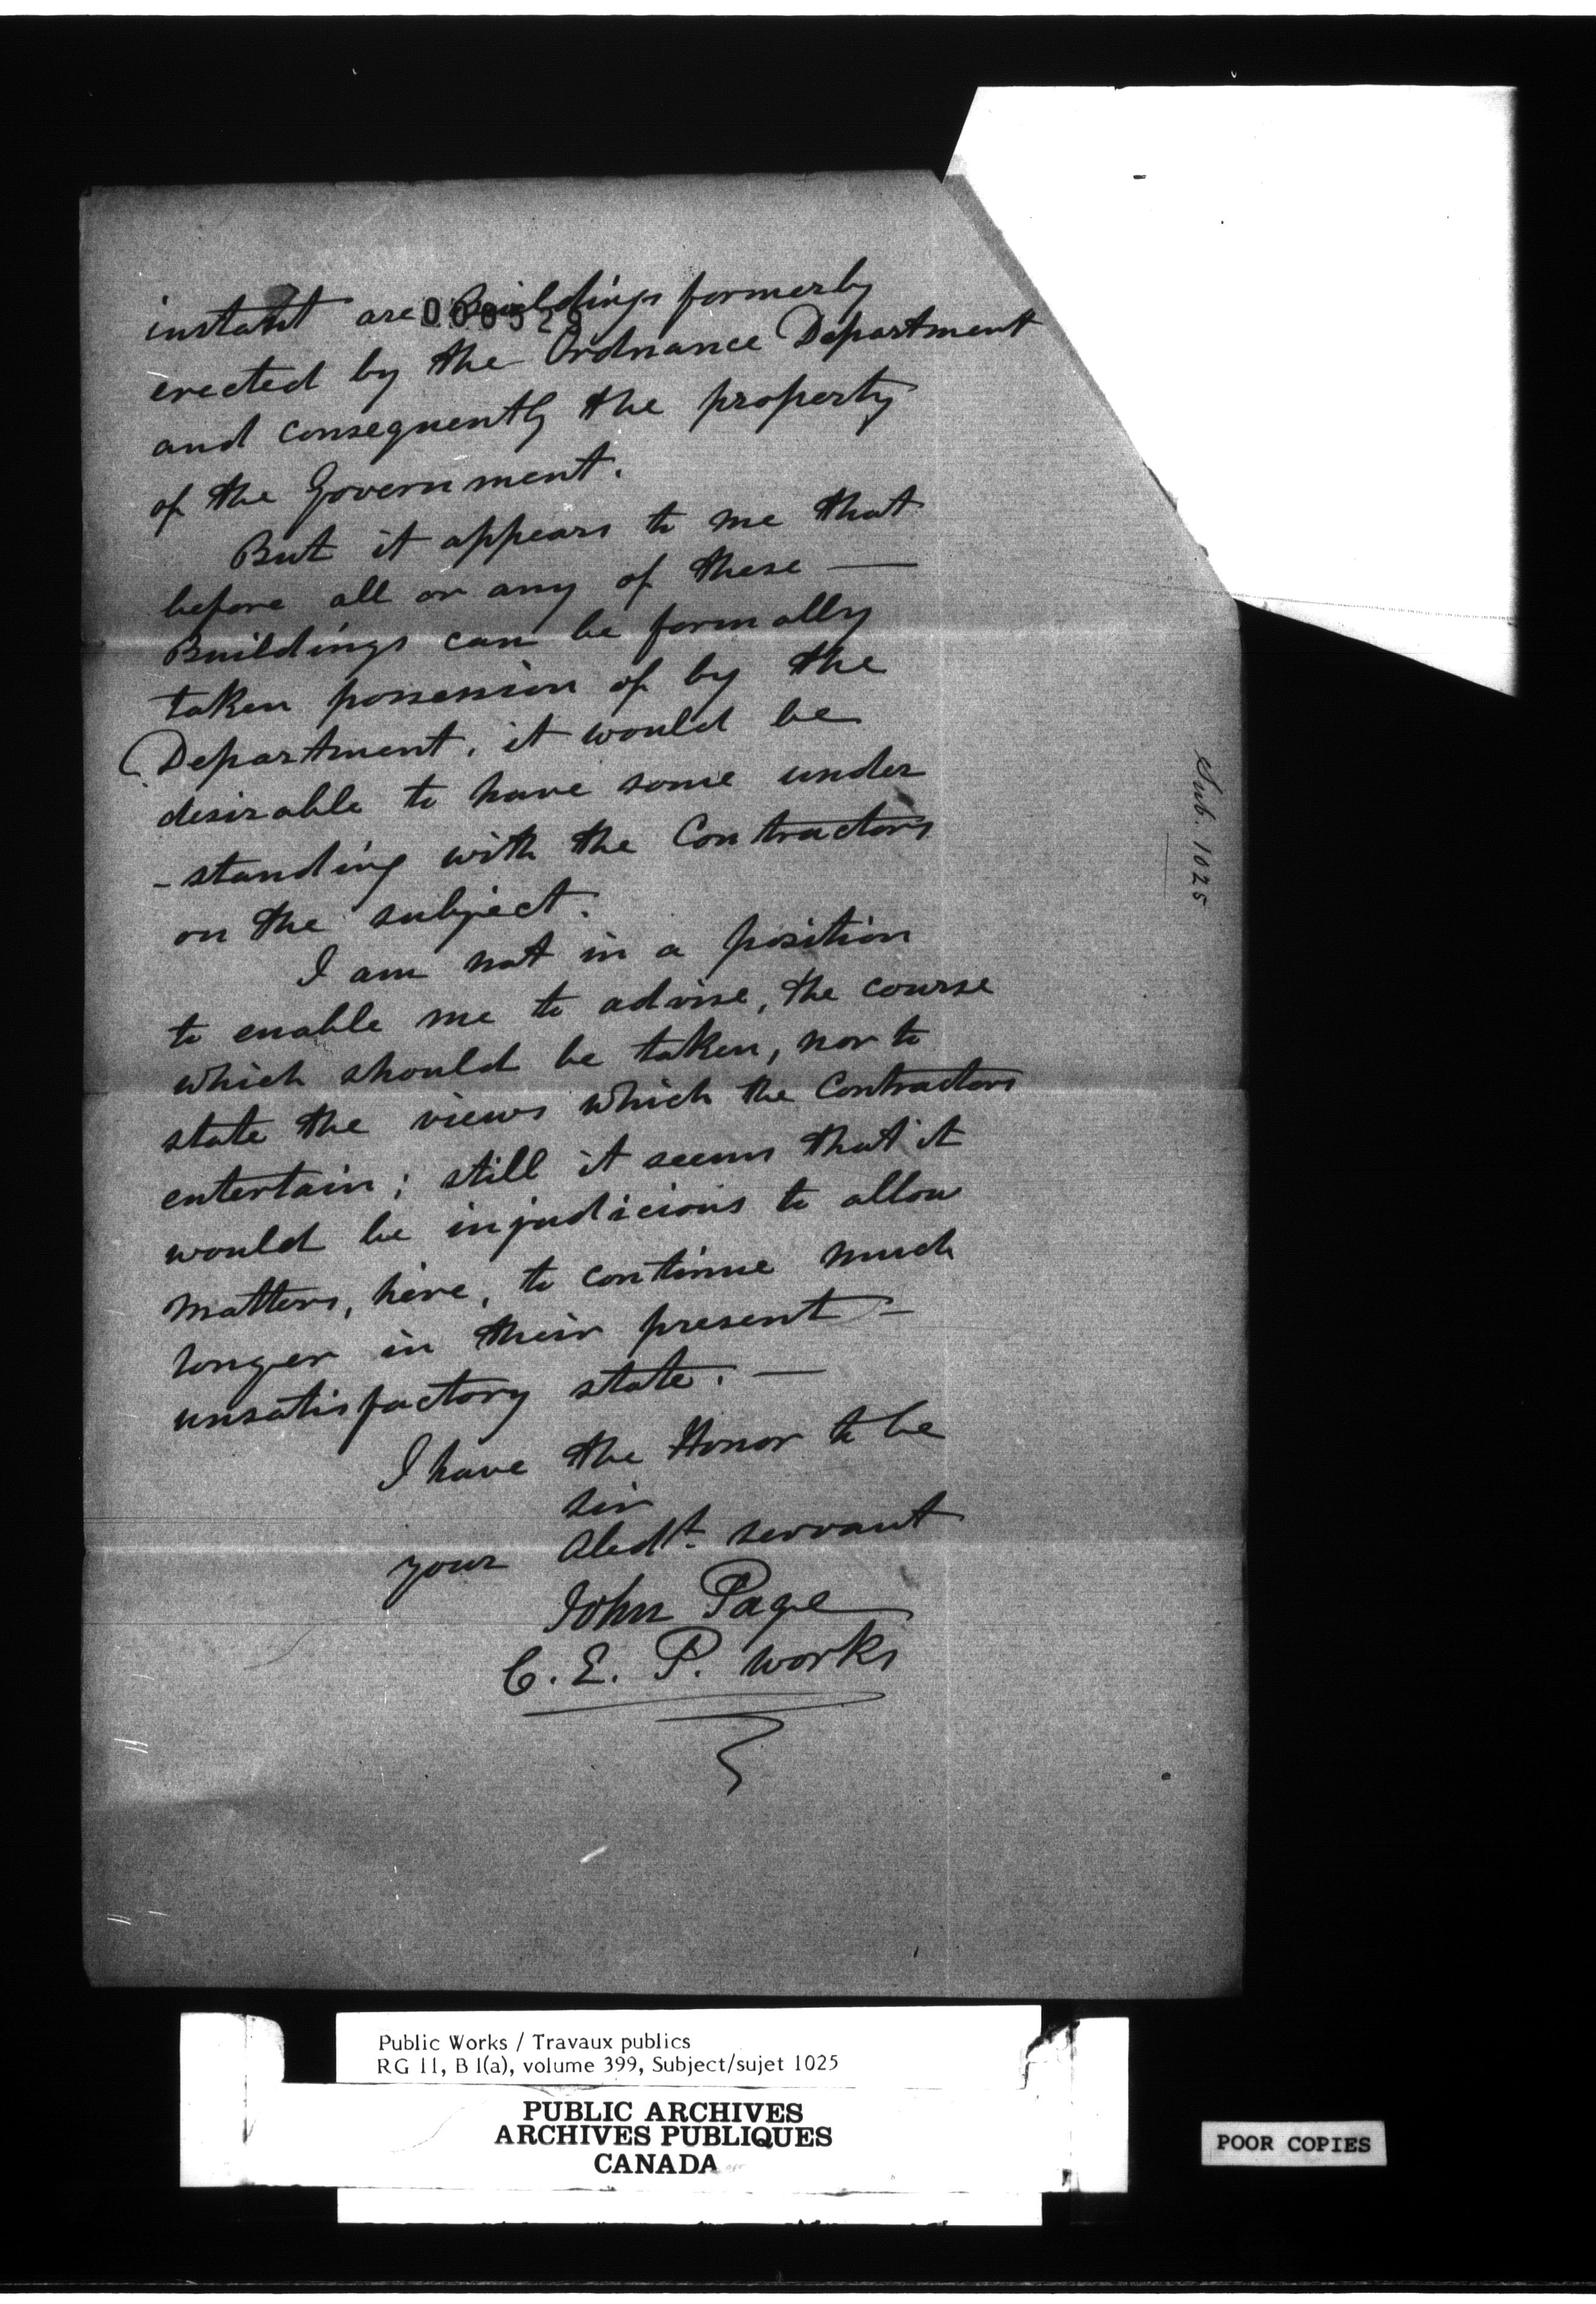 instant are Buildings formerly
000529
erected by the Ordnance Department
and consequently the property
of the Government.
But it appears to me that
before all or any of these —
Buildings can be formally
taken possession of by the
Department, it would be
desirable to have some under
-standing with the Contractors
on the subject.
I am not in a position
to enable me to advise, the course
which should be taken, nor to
state the views which the Contractors
entertain; still it seems that it
would be injudicious to allow
matters, here, to continue much
longer in their present —
unsatisfactory state. —
I have the Honor to be
Sir
your Obedt. servant
John Page
C. E. P. Works
Sub. 1025
Public Works / Travaux publics
RG 11, B 1(a), volume 399, Subject/sujet 1025
PUBLIC ARCHIVES
ARCHIVES PUBLIQUES
CANADA
POOR COPIES